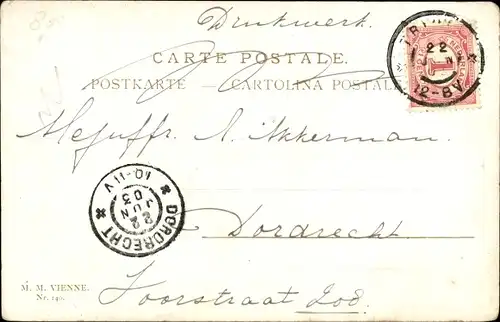 Drukwerk.
CARTE POSTALE.
POSTKARTE — CARTOLINA POSTALE
22
12-8V
1
Mejuffr. A. Akkerman.
DORDRECHT
22
JUN
03
10-11V
Dordrecht
Voorstraat Zod.
M. M. VIENNE.
Nr. 140.